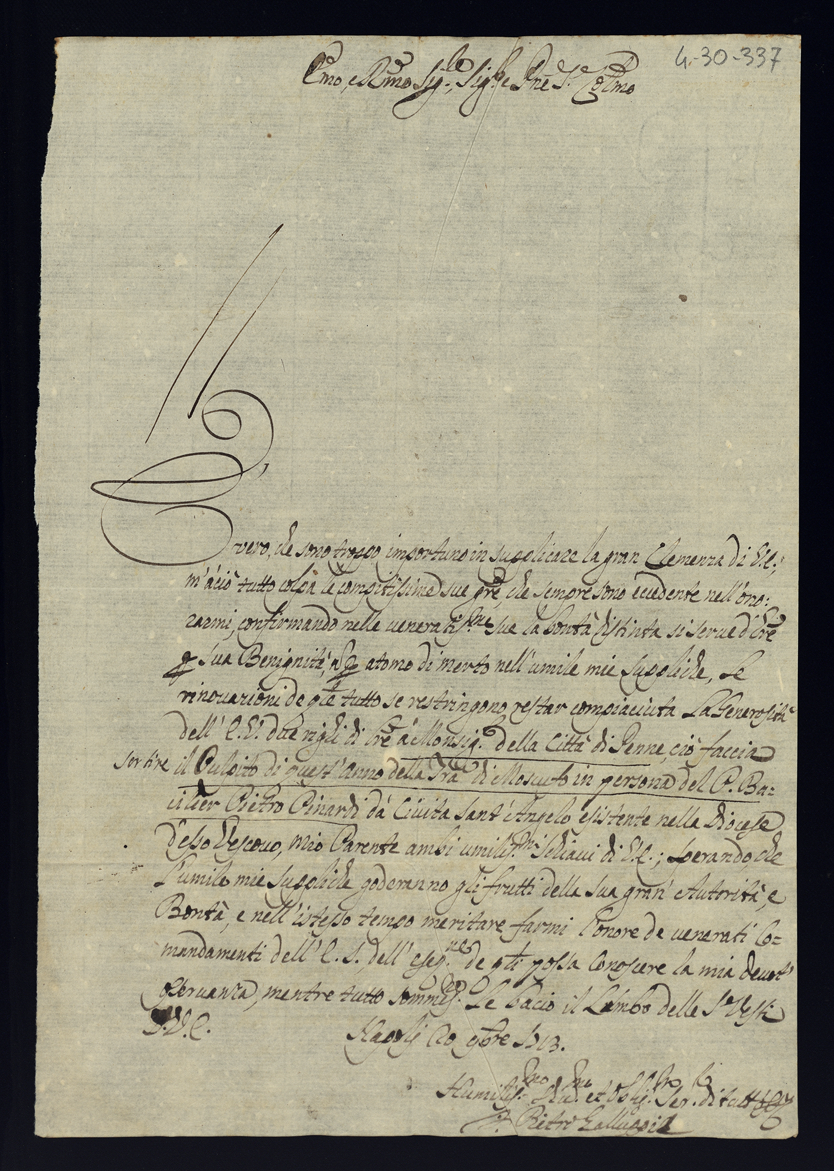 4-30-337
Em̃o, e Rm̃o Sig.re, Sig.re e Pñe S.r Col.mo
È vero, che sono troppo importuno in supplicare la gran Clemenza di V.E.;
m'à ciò tutto colpa le compitissime sue gr̃e, che sempre sono eccedente nell'ono:
rarmi, confirmando nelle venerat.me sue la bontà distinta si serve d'
p sua Benignità, atomo di merto nell'umile mie suppliche, Le
rinovazioni de q.le tutto se restringono restar compiaciuta La Generosità
dell'E.V. due righi di à Monsig.r della Città di Penne, ciò faccia
sortire il Pulpito di quest'anno della Trã di Moscufo in persona del P. Ba:
cilier Pietro Pinardi da Civita Sant'Angelo esistente nella Diocese
d'esso Vescovo, mio Parente ambi umiliss.mi Schiavi di V.E.; sperando che
l'umile mie suppliche goderanno gli frutti della sua gran' Autorità, e
Bontà, e nell'istesso tempo meritare farmi l'onore de venerati Co:
mandamenti dell'E.S., dell' de q.li possa conoscere la mia devot.
osservanza, mentre tutto Le bacio il Lembo delle
D.V.E. Napoli 20 9bre 1713.
Humiliss.mo et Oblig.mo Ser. di
Pietro